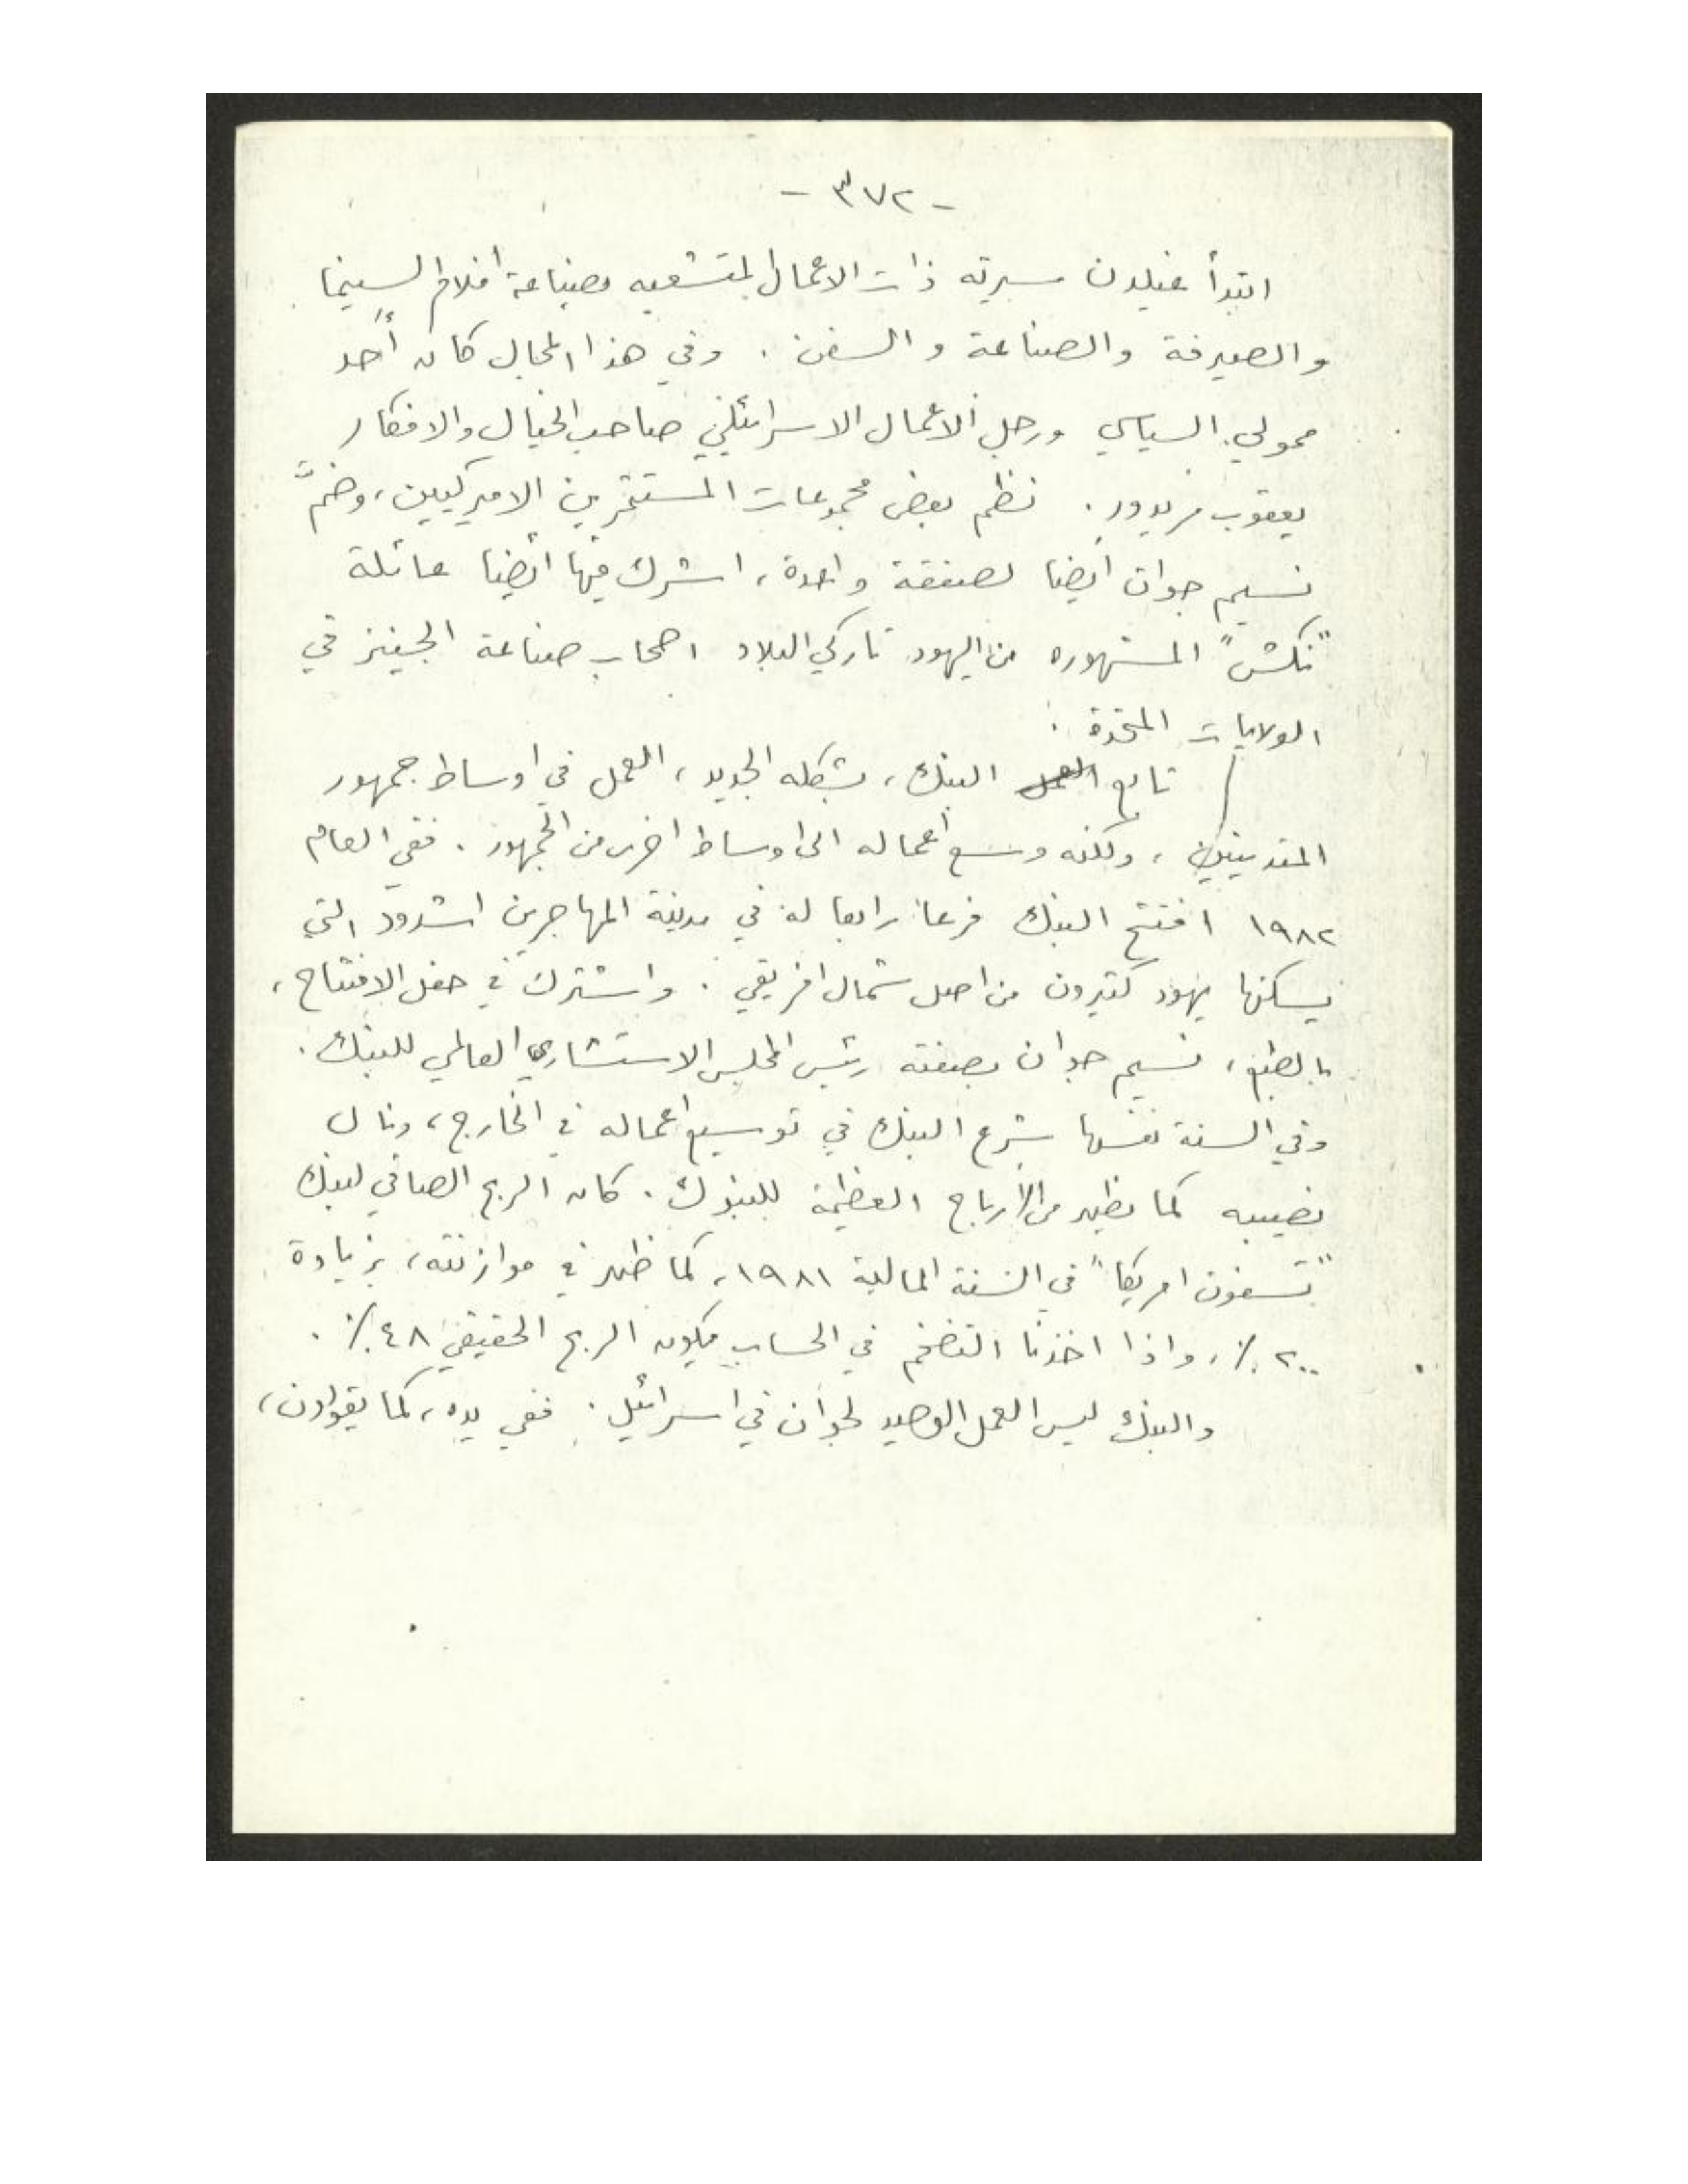 - ٣٧٢ -
ابتدأ غيلدن سيرته ذات الاعمال المتشعبه بصناعة افلام السينما
والصيرفة والصناعة والسفن . وفي هذا المجال كان أحد
ممولي السياسي ورجل الاعمال الاسرائيلي صاحب الخيال والافكار
يعقوب مريدور . نظم بعض مجموعات المستثمرين الاميركيين، وضمَّ
نسيم جوان ايضا لصفقة واحدة، اشرك فيها ايضا عائلة
"نكش" المشهوره من اليهود تاركي البلاد اصحاب صناعة الجينز في
الولايات المتحدة .
تابع البنك، بشكله الجديد، العمل في اوساط جمهور
المتدينين، ولكنه وسع أعماله الى اوساط اخرى من الجمهور . ففي العام
١٩٨٢ افتتح البنك فرعا رابعا له في مدينة المهاجرين اشدود التي
يسكنها يهود كثيرون من اصل شمال افريقي . واشترك في حفل الافتتاح،
بالطبع، نسيم جوان بصفته رئيس المجلس الاستشاري العالمي للبنك .
وفي السنة نفسها شرع البنك في توسيع اعماله في الخارج، ونال
نصيبه كما يظهر من الأرباح العظيمة للبنوك . كان الربح الصافي لبنك
"تسفون امريكا" في السنة المالية ١٩٨١، كما ظهر في موازنته، بزيادة
٢٠٠٪، واذا اخذنا التضخم في الحساب فيكون الربح الحقيقي ٤٨٪ .
والبنك ليس العمل الوحيد لجوان في اسرائيل . ففي يده، كما يقولون،